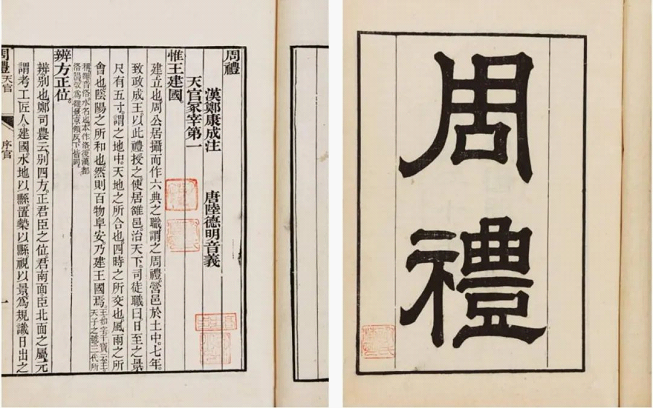 周
禮
周禮
漢鄭康成注 唐陸德明音義
天官冢宰第一
惟王建國
建立也周公居攝而作六典之職謂之周禮營邑於土中七年
致政成王以此禮授之使居雒邑治天下司徒職曰日至之景
尺有五寸謂之地中天地之所合也四時之所交也風雨之所
會也陰陽之所和也然則百物阜安乃建王國焉
辨方正位
辨別也鄭司農云別四方正君臣之位君南面臣北面之屬元
謂考工匠人建國水地以縣置槷以縣視以景爲規識日出之
周禮 天官 序官 一